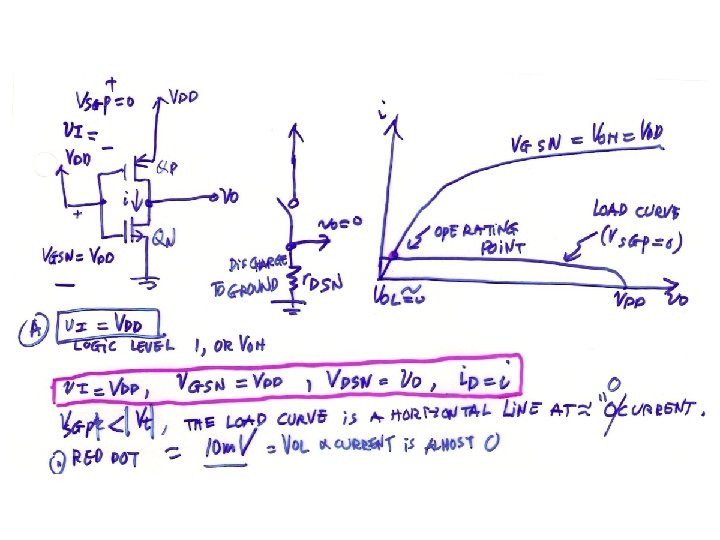 +
VSGP=0
VDD
VI=
−
VDD
QP
i
VO
+
QN
VGSN=VDD
−
vo=0
DISCHARGE
TO GROUND
rDSN
i
VGSN = VOH = VDD
OPERATING
POINT
LOAD CURVE
(VSGP=0)
VOL≈0
VDD
VO
(A) VI = VDD
LOGIC LEVEL 1, OR VOH
VI=VDD, VGSN=VDD, VDSN=VO, iD=i
0
VSGP < |Vt|, THE LOAD CURVE IS A HORIZONTAL LINE AT ≈ "0" CURRENT.
RED DOT = 10mV = VOL & CURRENT IS ALMOST 0